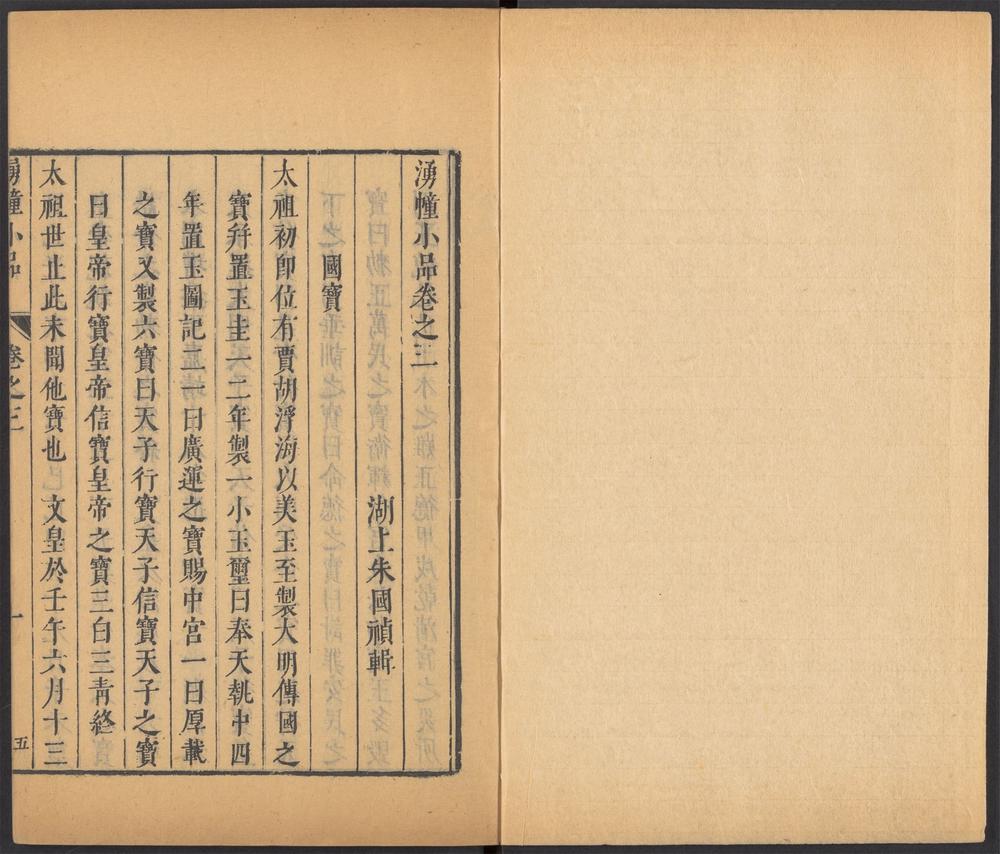 湧幢小品卷之三
湖上朱國禎輯
國寶
太祖初卽位有賈胡浮海以美玉至製大明傳國之
寶幷置玉圭一二年製一小玉璽曰奉天執中四
年置玉圖記二一曰廣運之寶賜中宮一曰厚載
之寶又製六寶曰天子行寶天子信寶天子之寶
曰皇帝行寶皇帝信寶皇帝之寶三白三靑終
太祖世止此未聞他寶也 文皇於壬午六月十三
湧幢小品 卷之三 一 五